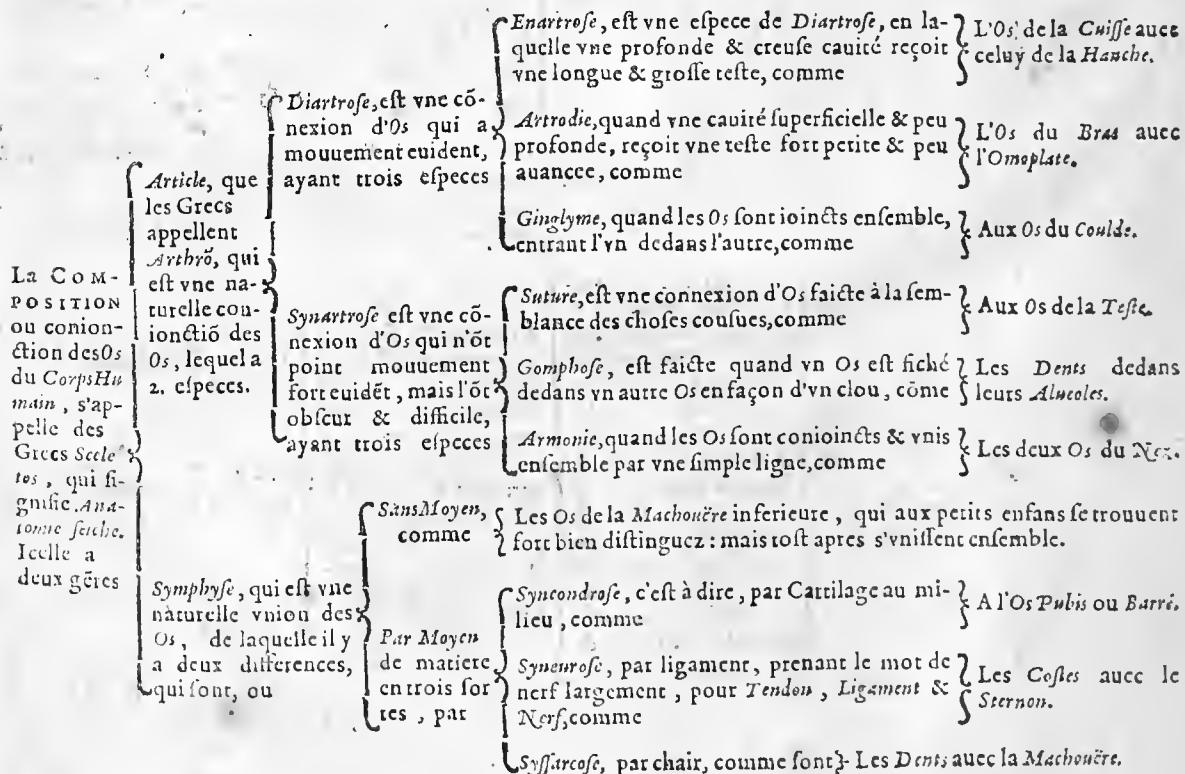 La COM-
POSITION
ou conion-
ction desOs
du CorpsHu
main, s'ap-
pelle des
Grecs Scele
tos, qui si-
gnifie Ana-
tomie seiche.
Icelle a
deux gẽres
Article, que
les Grecs
appellent
Arthrõ, qui
est vne na-
turelle con-
ionctiõ des
Os, lequel a
2. especes.
Diartrose, est vne cõ-
nexion d'Os qui a
mouuement euident,
ayant trois especes
Enartrose, est vne espece de Diartrose, en la-
quelle vne profonde & creuse cauité reçoit
vne longue & grosse teste, comme
L'Os de la Cuisse auec
celuy de la Hanche.
Artrodie, quand vne cauité superficielle & peu
profonde, reçoit vne teste fort petite & peu
auancee, comme
L'Os du Bras auec
l'Omoplate.
Ginglyme, quand les Os sont ioincts ensemble,
entrant l'vn dedans l'autre, comme
Aux Os du Coulde.
Synartrose est vne cõ-
nexion d'Os qui n'õt
point mouuement
fort euidẽt, mais l'õt
obscur & difficile,
ayant trois especes
Suture, est vne connexion d'Os faicte à la sem-
blance des choses cousues, comme
Aux Os de la Teste.
Gomphose, est faicte quand vn Os est fiché
dedans vn autre Os en façon d'vn clou, cõme
Les Dents dedans
leurs Alueoles.
Armonie, quand les Os sont conioincts & vnis
ensemble par vne simple ligne, comme
Les deux Os du Nez.
Symphyse, qui est vne
naturelle vnion des
Os, de laquelle il y
a deux differences,
qui sont, ou
Sans Moyen,
comme
Les Os de la Machouëre inferieure, qui aux petits enfans se trouuent
fort bien distinguez : mais tost apres s'vnissent ensemble.
Par Moyen
de matiere
en trois sor
tes, par
Syncondrose, c'est à dire, par Cartilage au mi-
lieu, comme
A l'Os Pubis ou Barré.
Syneurose, par ligament, prenant le mot de
nerf largement, pour Tendon, Ligament &
Nerf, comme
Les Costes auec le
Sternon.
Syssarcose, par chair, comme sont
Les Dents auec la Machouëre.